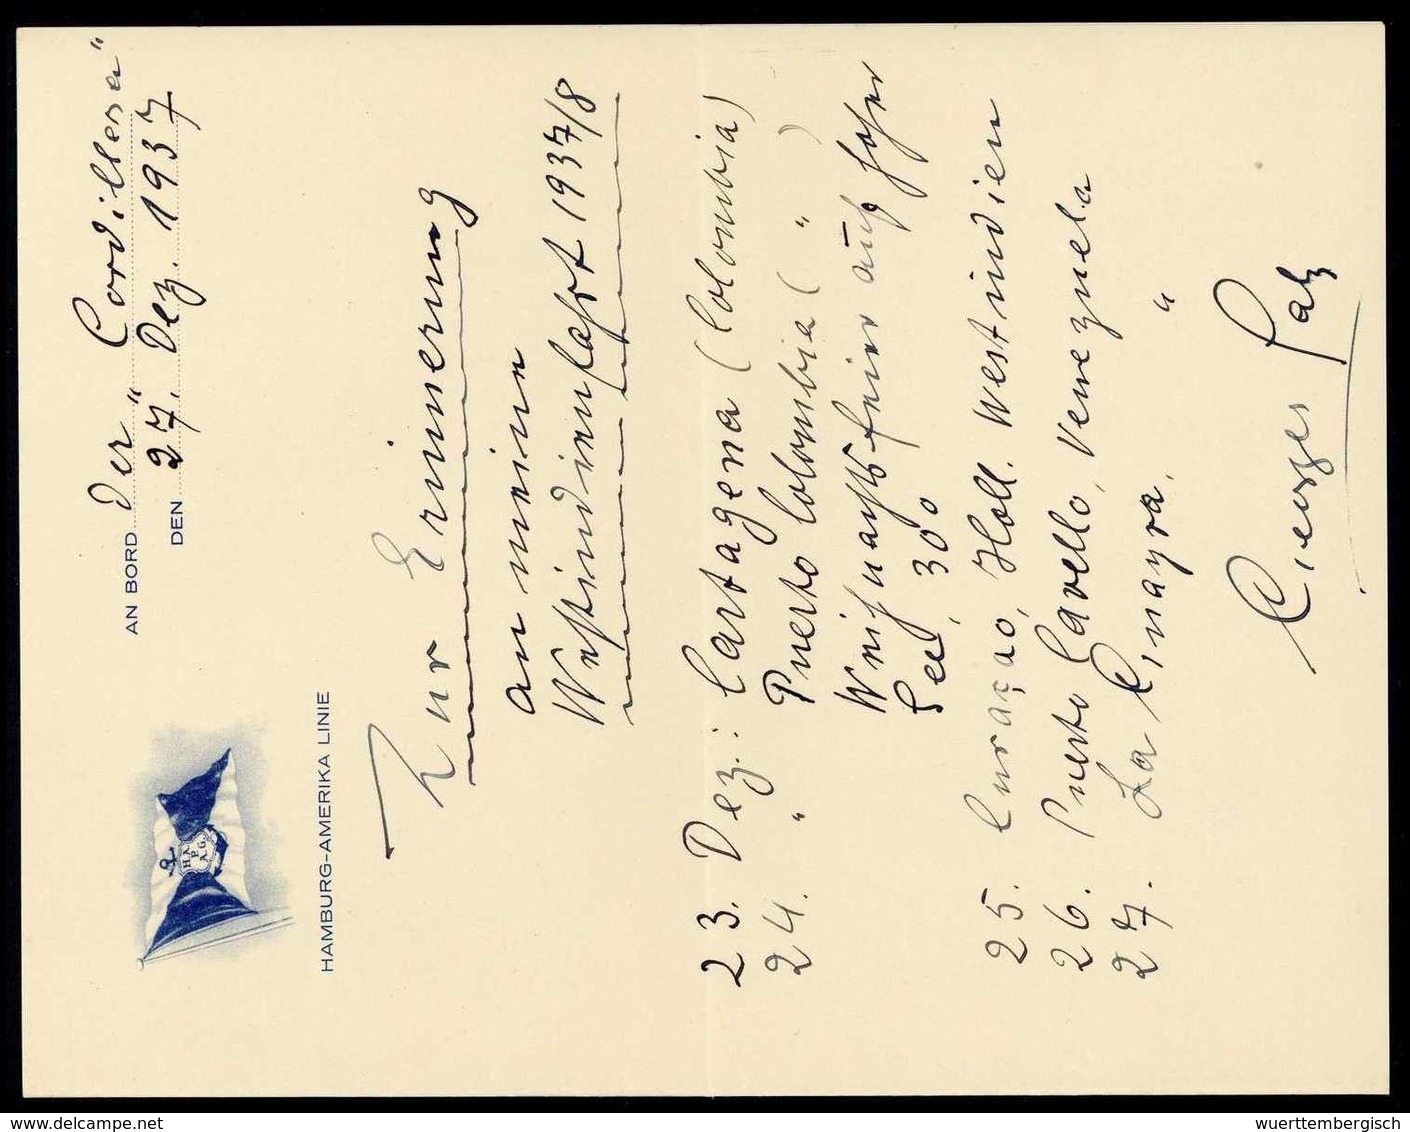 HAMBURG-AMERIKA LINIE
AN BORD der „Cordillera“
DEN 27. Dez. 1937
Zur Erinnerung
an meine
Westindienfahrt 1937/8
23. Dez.: Cartagena (Colombia)
24. „ Puerto Colombia ( „ )
Weihnachtsfeier auf hoher
See, 30°
25. Curaçao, Holl. Westindien
26. Puerto Cavello, Venezuela
27. La Guayra, „
H A P A G
delcampe.net
wuerttembergisch